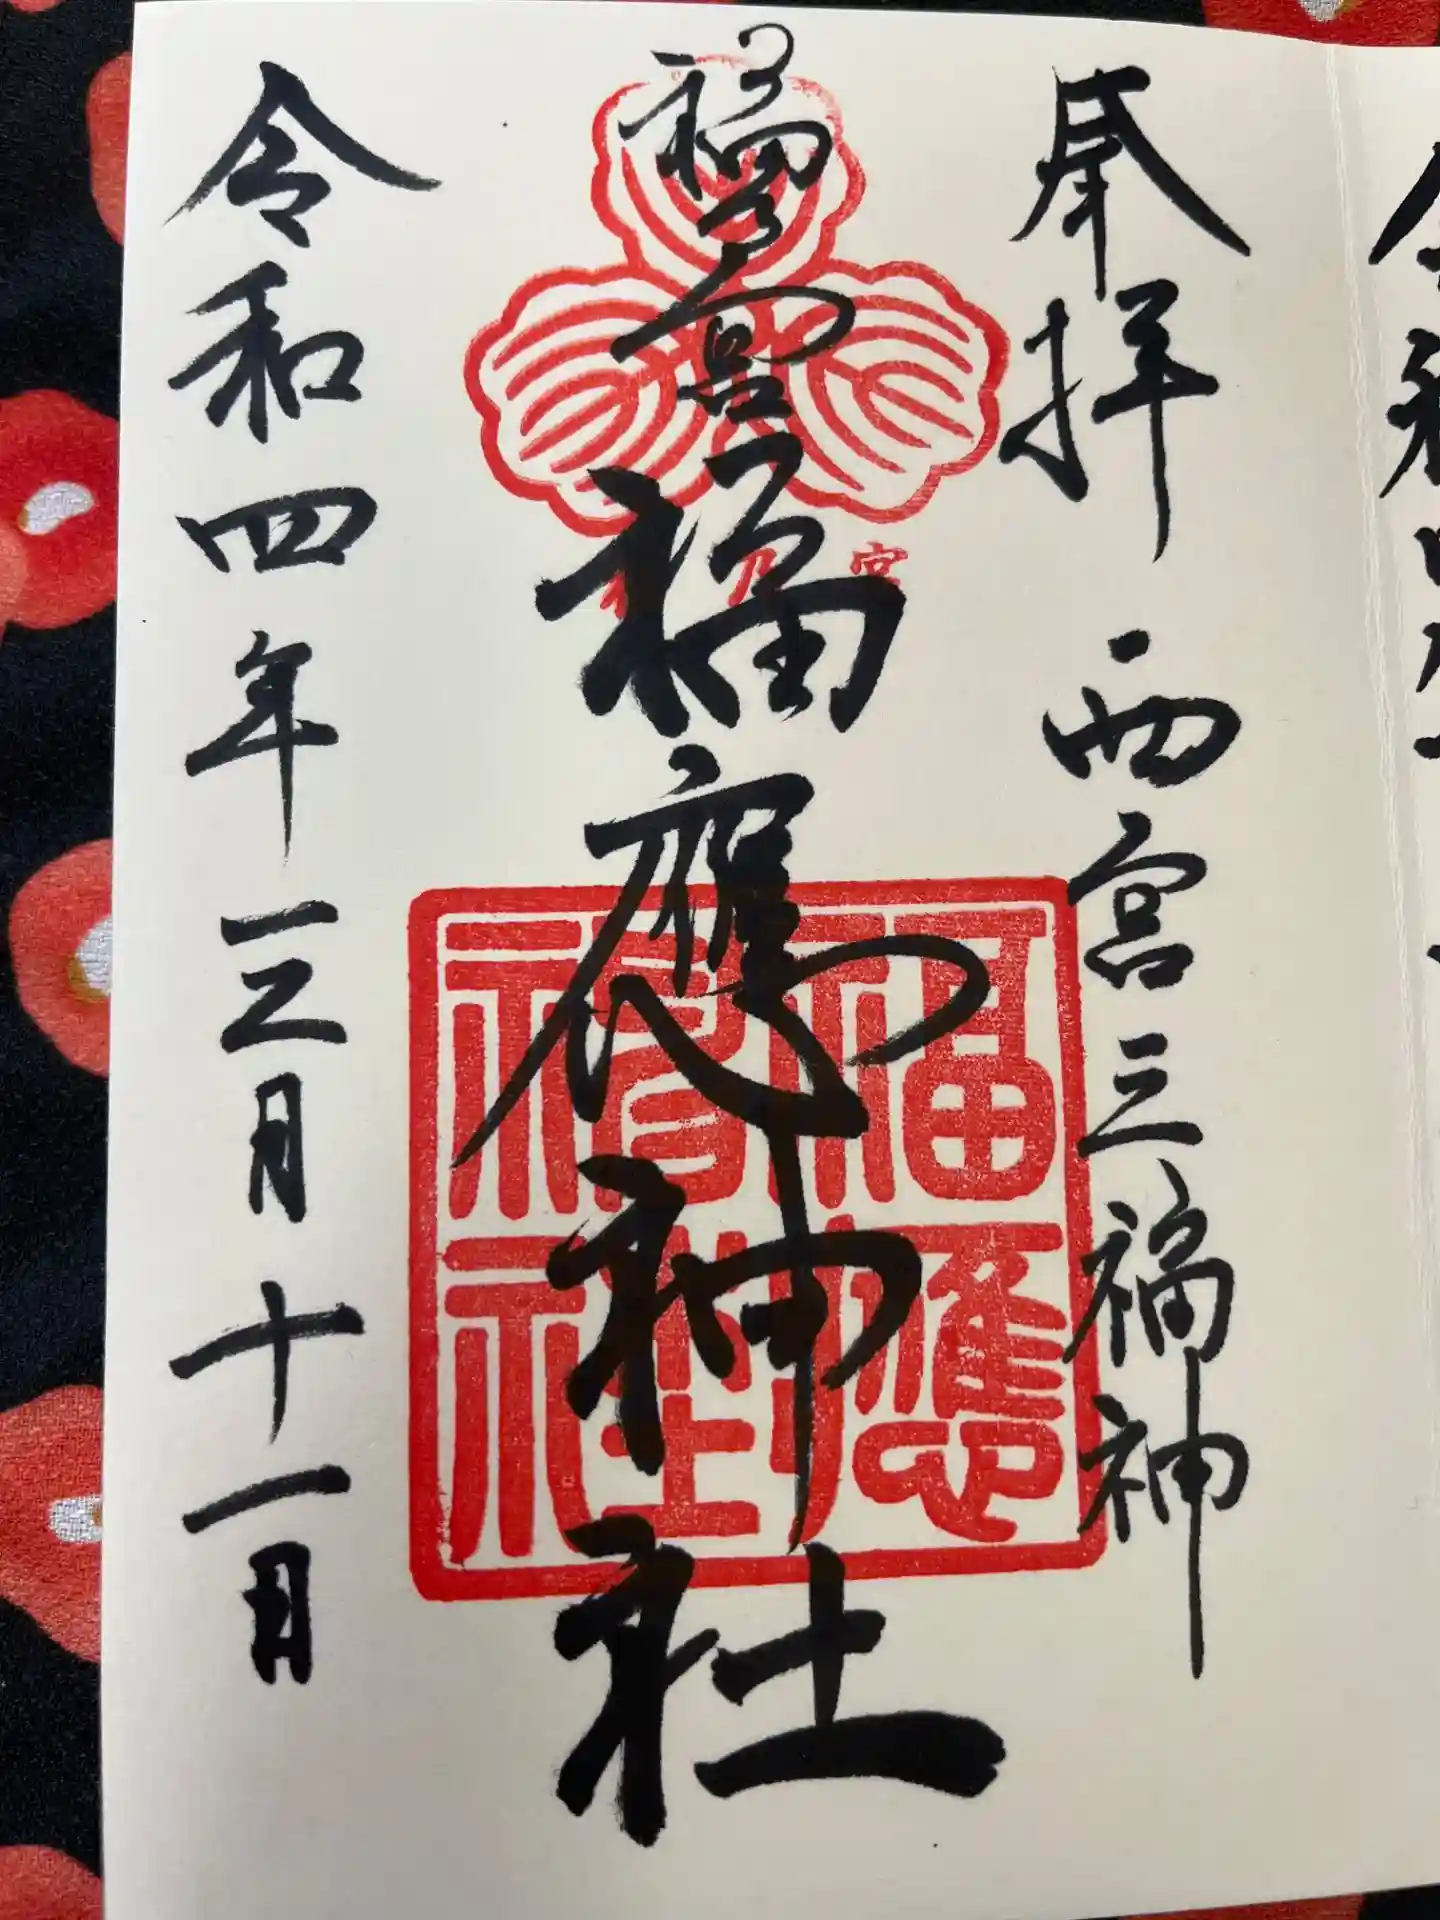 奉拝 西宮三福神
福應神社
福應神社
令和四年三月十一日